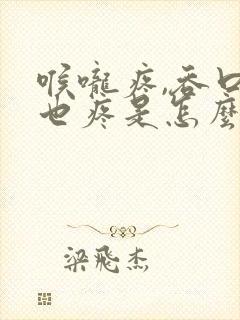 喉嚨疼,吞口
也疼是怎麼
梁飛杰